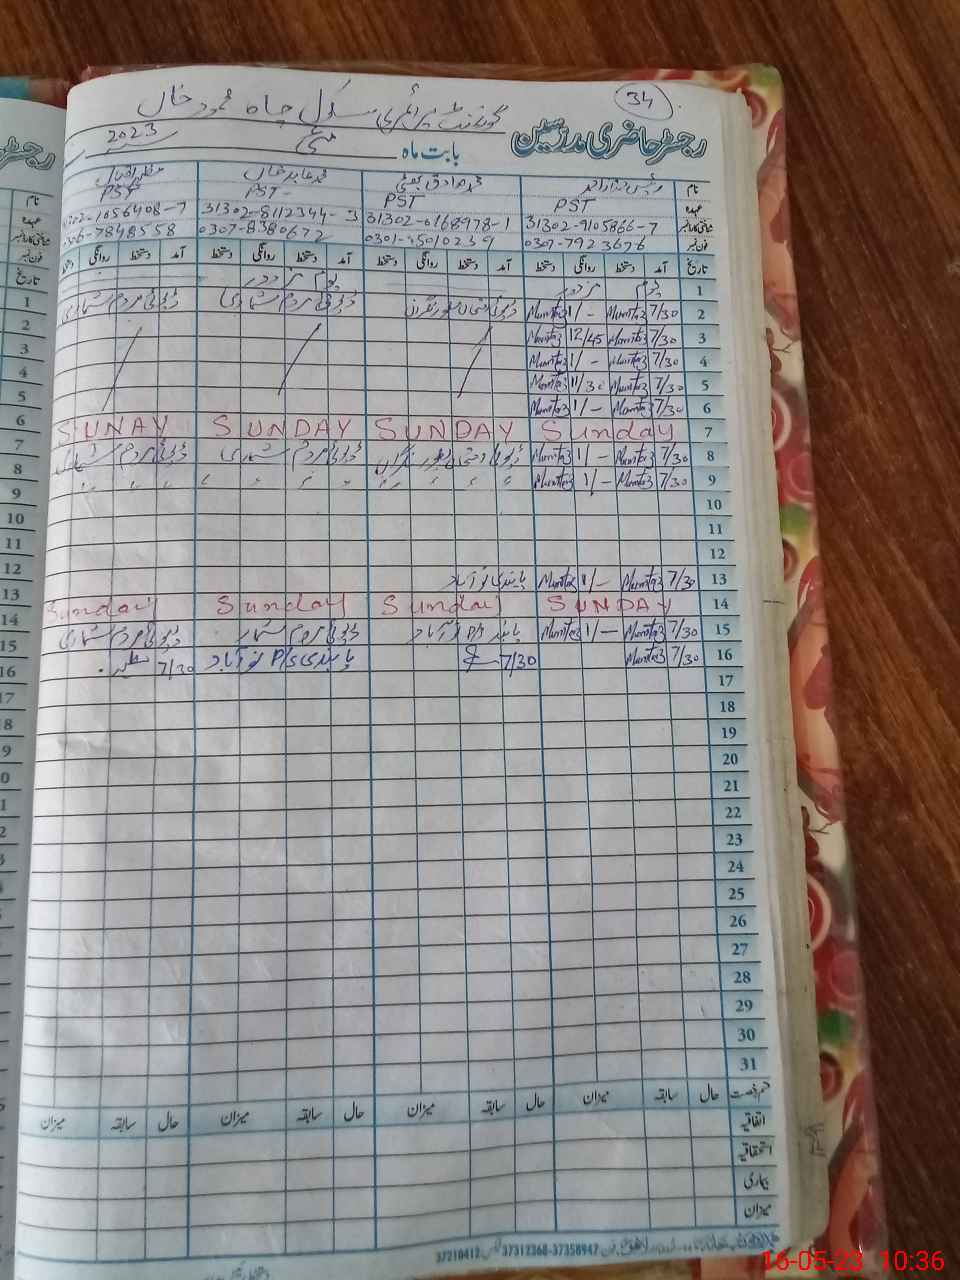 34
گورنمنٹ پرائمری سکول چاہ محمود خاں
رجسٹر حاضری مدرسین
بابت ماہ مئی 2023
نام
عہدہ PST PST PST PST
شناختی کارڈ نمبر 31302-9105866-7 31302-0168978-1 31302-8112344-3 1056408-7
فون نمبر 0307-7923676 0301-5010239 0307-8380672 7848558
تاریخ آمد دستخط روانگی دستخط آمد دستخط روانگی دستخط آمد دستخط روانگی دستخط آمد دستخط روانگی دستخط
1 یوم مزدور یوم مزدور
2 7/30 Mumtaz 1/- Mumtaz ڈیوٹی مردم شماری ڈیوٹی مردم شماری
3 7/30 Mumtaz 12/45 Mumtaz
4 7/30 Mumtaz 1/- Mumtaz
5 7/30 Mumtaz 11/30 Mumtaz
6 7/30 Mumtaz 1/- Mumtaz
7 Sunday SUNDAY SUNDAY SUNAY
8 7/30 Mumtaz 1/- Mumtaz ڈیوٹی مردم شماری ڈیوٹی مردم شماری
9 7/30 Mumtaz 1/- Mumtaz
10
11
12
13 7/30 Mumtaz 1/- Mumtaz
14 SUNDAY Sunday Sunday Sunday
15 7/30 Mumtaz 1/- Mumtaz P/S ڈیوٹی مردم شماری ڈیوٹی مردم شماری
16 7/30 Mumtaz 7/30 P/S 7/30
17
18
19
20
21
22
23
24
25
26
27
28
29
30
31
قسم رخصت حال سابقہ میزان حال سابقہ میزان حال سابقہ میزان حال سابقہ میزان
اتفاقیہ
استحقاقیہ
بیماری
میزان
37312368-37358947 37210412
16-05-23 10:36